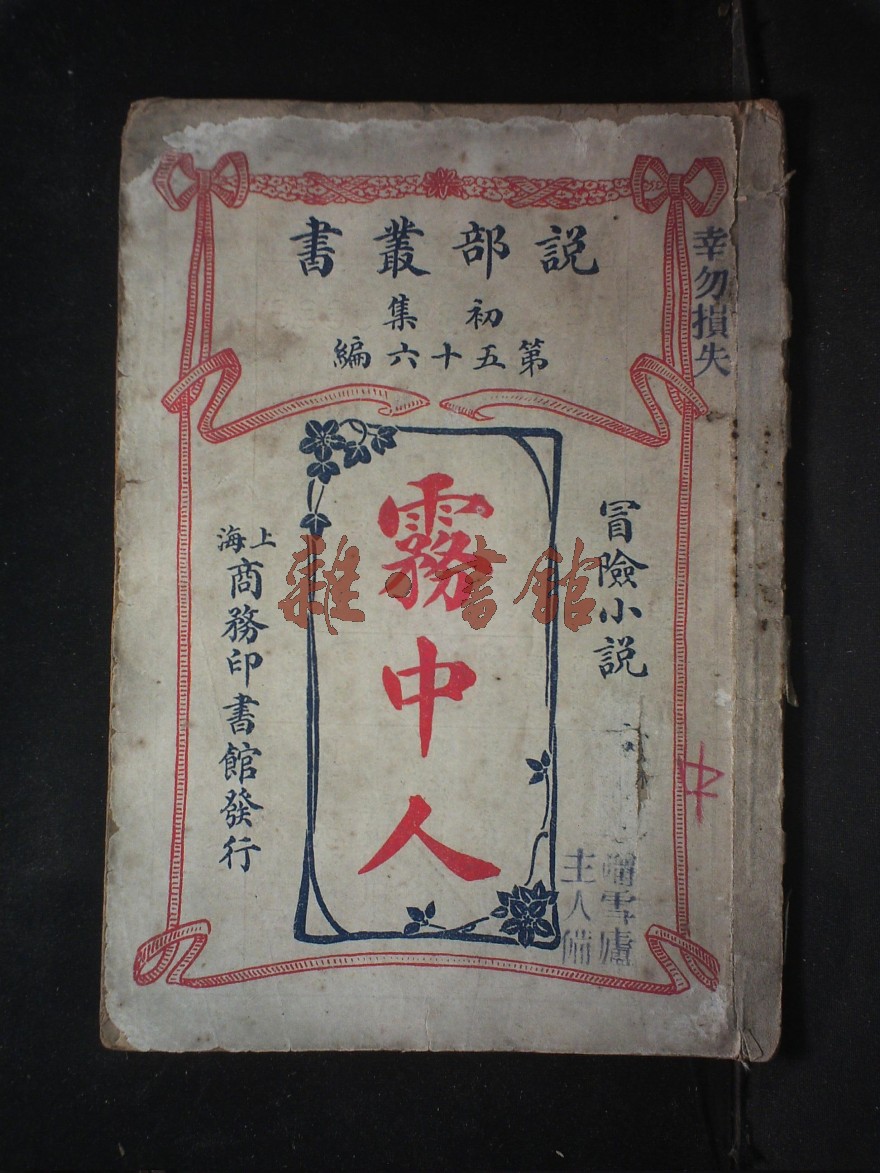 説部叢書
初集
第五十六編
冒險小説
霧中人
上海
商務印書館發行
幸勿損失
雪廬
主人備
中
雜·書館